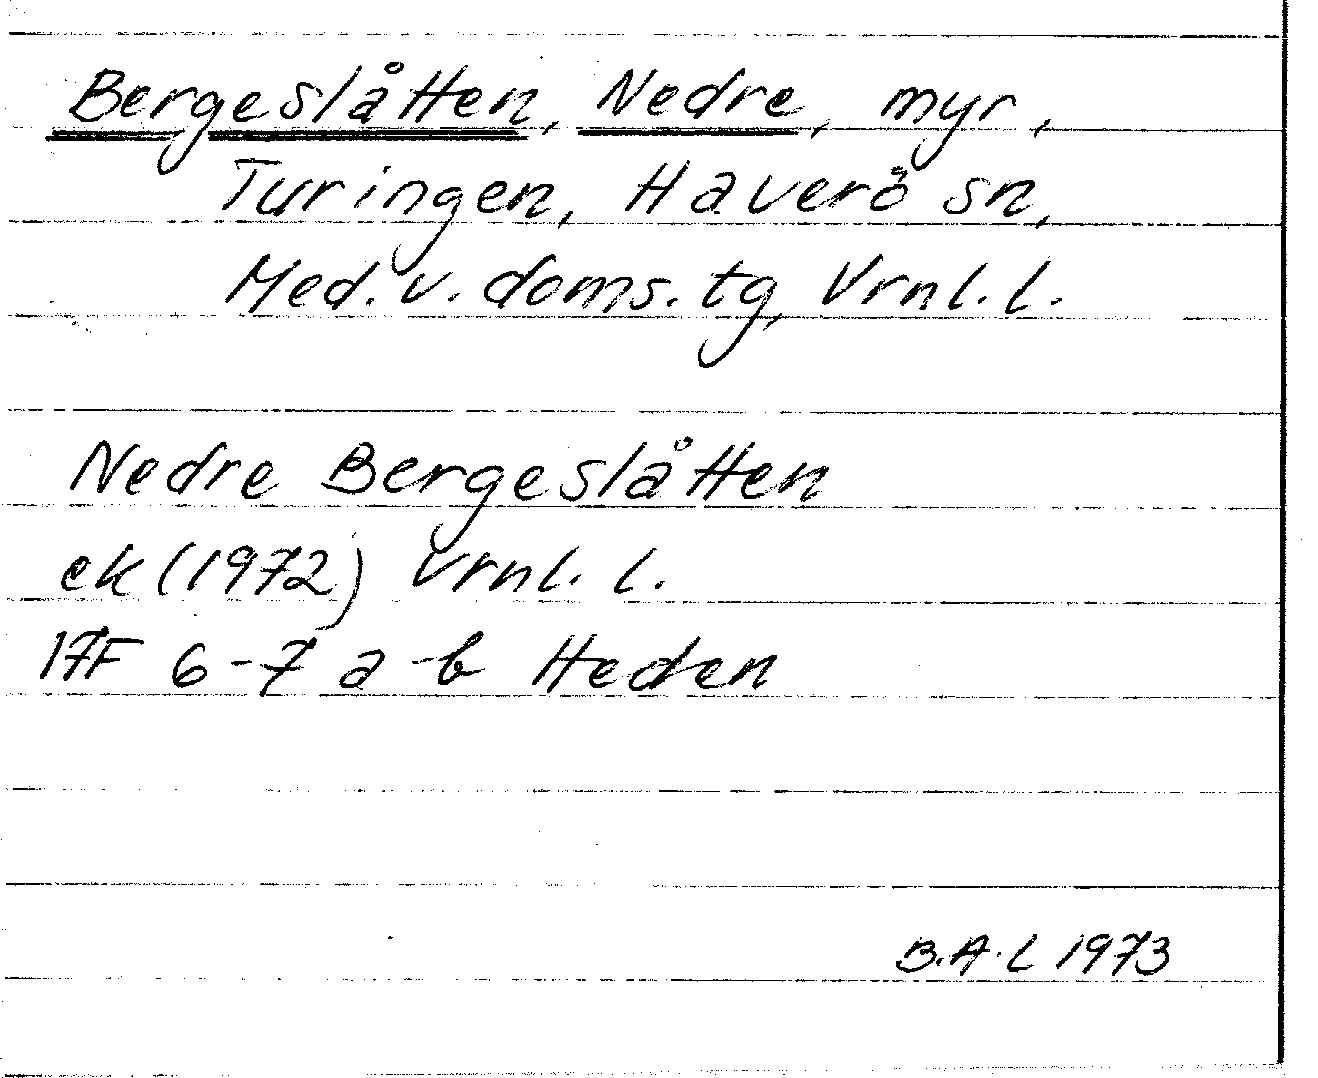 Bergeslåtten, Nedre, myr,
Turingen, Haverö sn,
Med. v. doms. tg, Vrnl. l.
Nedre Bergeslåtten
ek (1972) Vrnl. l.
17F 6-7 a-b Heden
B.A.L 1973